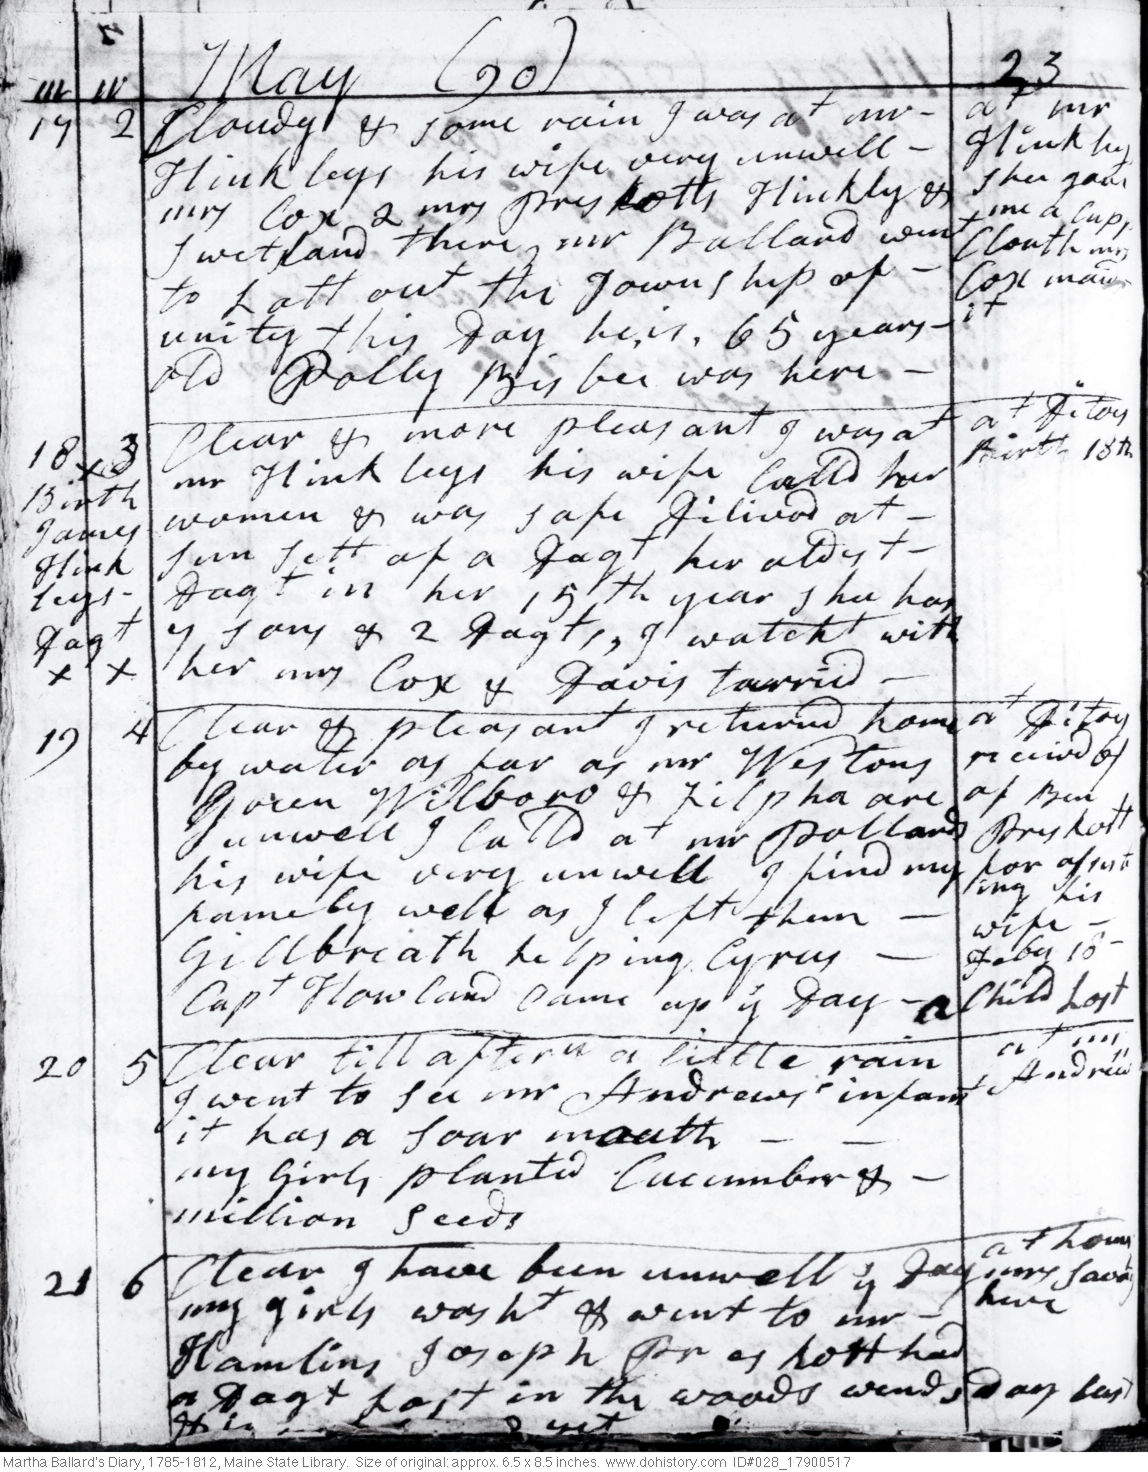 M W May (90) 23
17 2 Cloudy & some rain I was at mr
Hinkleys his wife very unwell
mrs Cox 2 mrs Preskotts Hinkly &
Swetland there, mr Ballard went
to Lott out the Township of
unity this Day he is, 65 years
old Polly Bisbee was here
at mr
Hinkley
shee gave
me a Cap,
Cloath mrs
Cox made
it
18 x 3 Clear & more pleasant I was at
mr Hinkleys his wife Calld her
women & was safe Dilivrd at
sun sett of a Dagt her oldest
Dagt in her 15th year shee has
7 sons & 2 Dagts, I watcht with
her mrs Cox & Davis tarried
Birth
James
Hink
leys
Dagt
x x
at Ditoes
Birth 18th
19 4 Clear & pleasant I returnd home
by water as far as mr Westons
Goien Wilboro & Zilpha are
unwell I Calld at mr Pollards
his wife very unwell I find my
famely well as I left them
Gillbreath helping Cyrus
Capt Howland Came up ye Day
at Ditoes
receivd of
of Ben
Preskott
for assist
ing his
wife
Feby 18
a Child Lost
20 5 Clear till aftern a little rain
I went to see mr Andrews' infant
it has a soar mouth
my Girls planted Cucumber &
million seeds
at mr
Andrew
21 6 Clear I have been unwell ye Day
my girls washt & went to mr
Hamlins Joseph Preskott had
a Dagt Lost in the woods wends Day last
& yet
at home
mrs Savag
here
Martha Ballard's Diary, 1785-1812, Maine State Library. Size of original: approx. 6.5 x 8.5 inches. www.dohistory.com ID#028_17900517